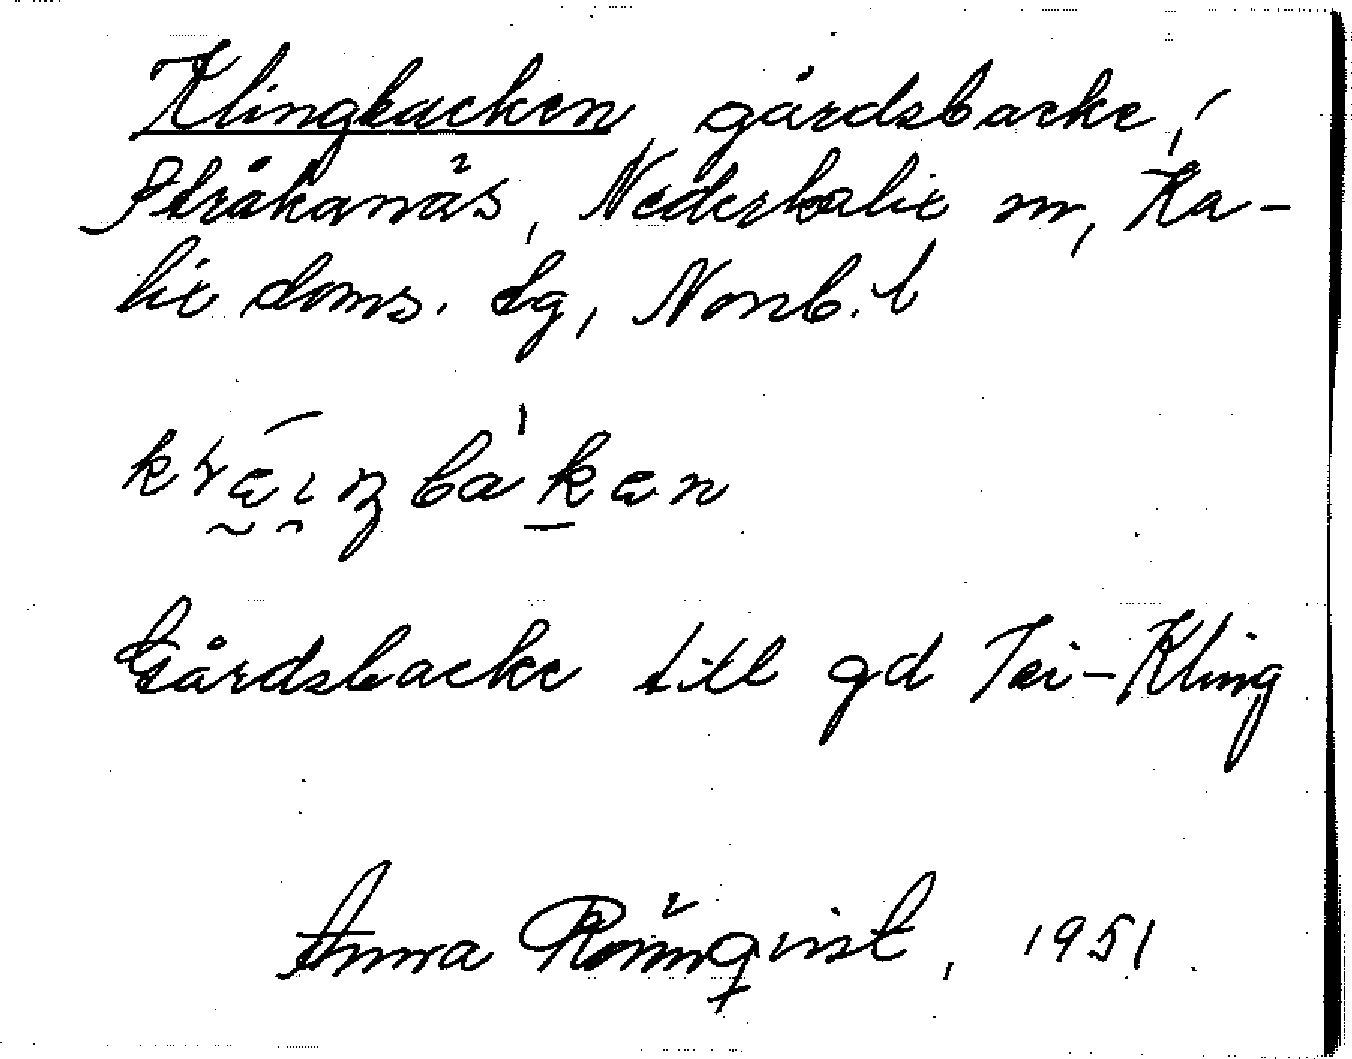 Klingbacken, gårdsbacke, i
Stråkanäs, Nederkalix sn, Ka-
lix doms. dg, Norrb. l
Gårdsbacke till gd Tei-Kling
Anna Rönnqvist, 1951